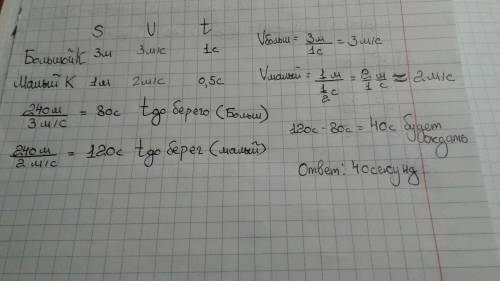 S V t
Большой К 3м 3м/с 1с
Малый К 1м 2м/с 0,5с
240м/3м/с = 80с t до берего (Больш)
240м/2м/с = 120с t до берег (малый)
Vбольш = 3м/1с = 3м/с
Vмалый = 1м/½с = 2м/1с ≈ 2м/с
120с - 80с = 40с будет
ждать
Ответ: 40секунд